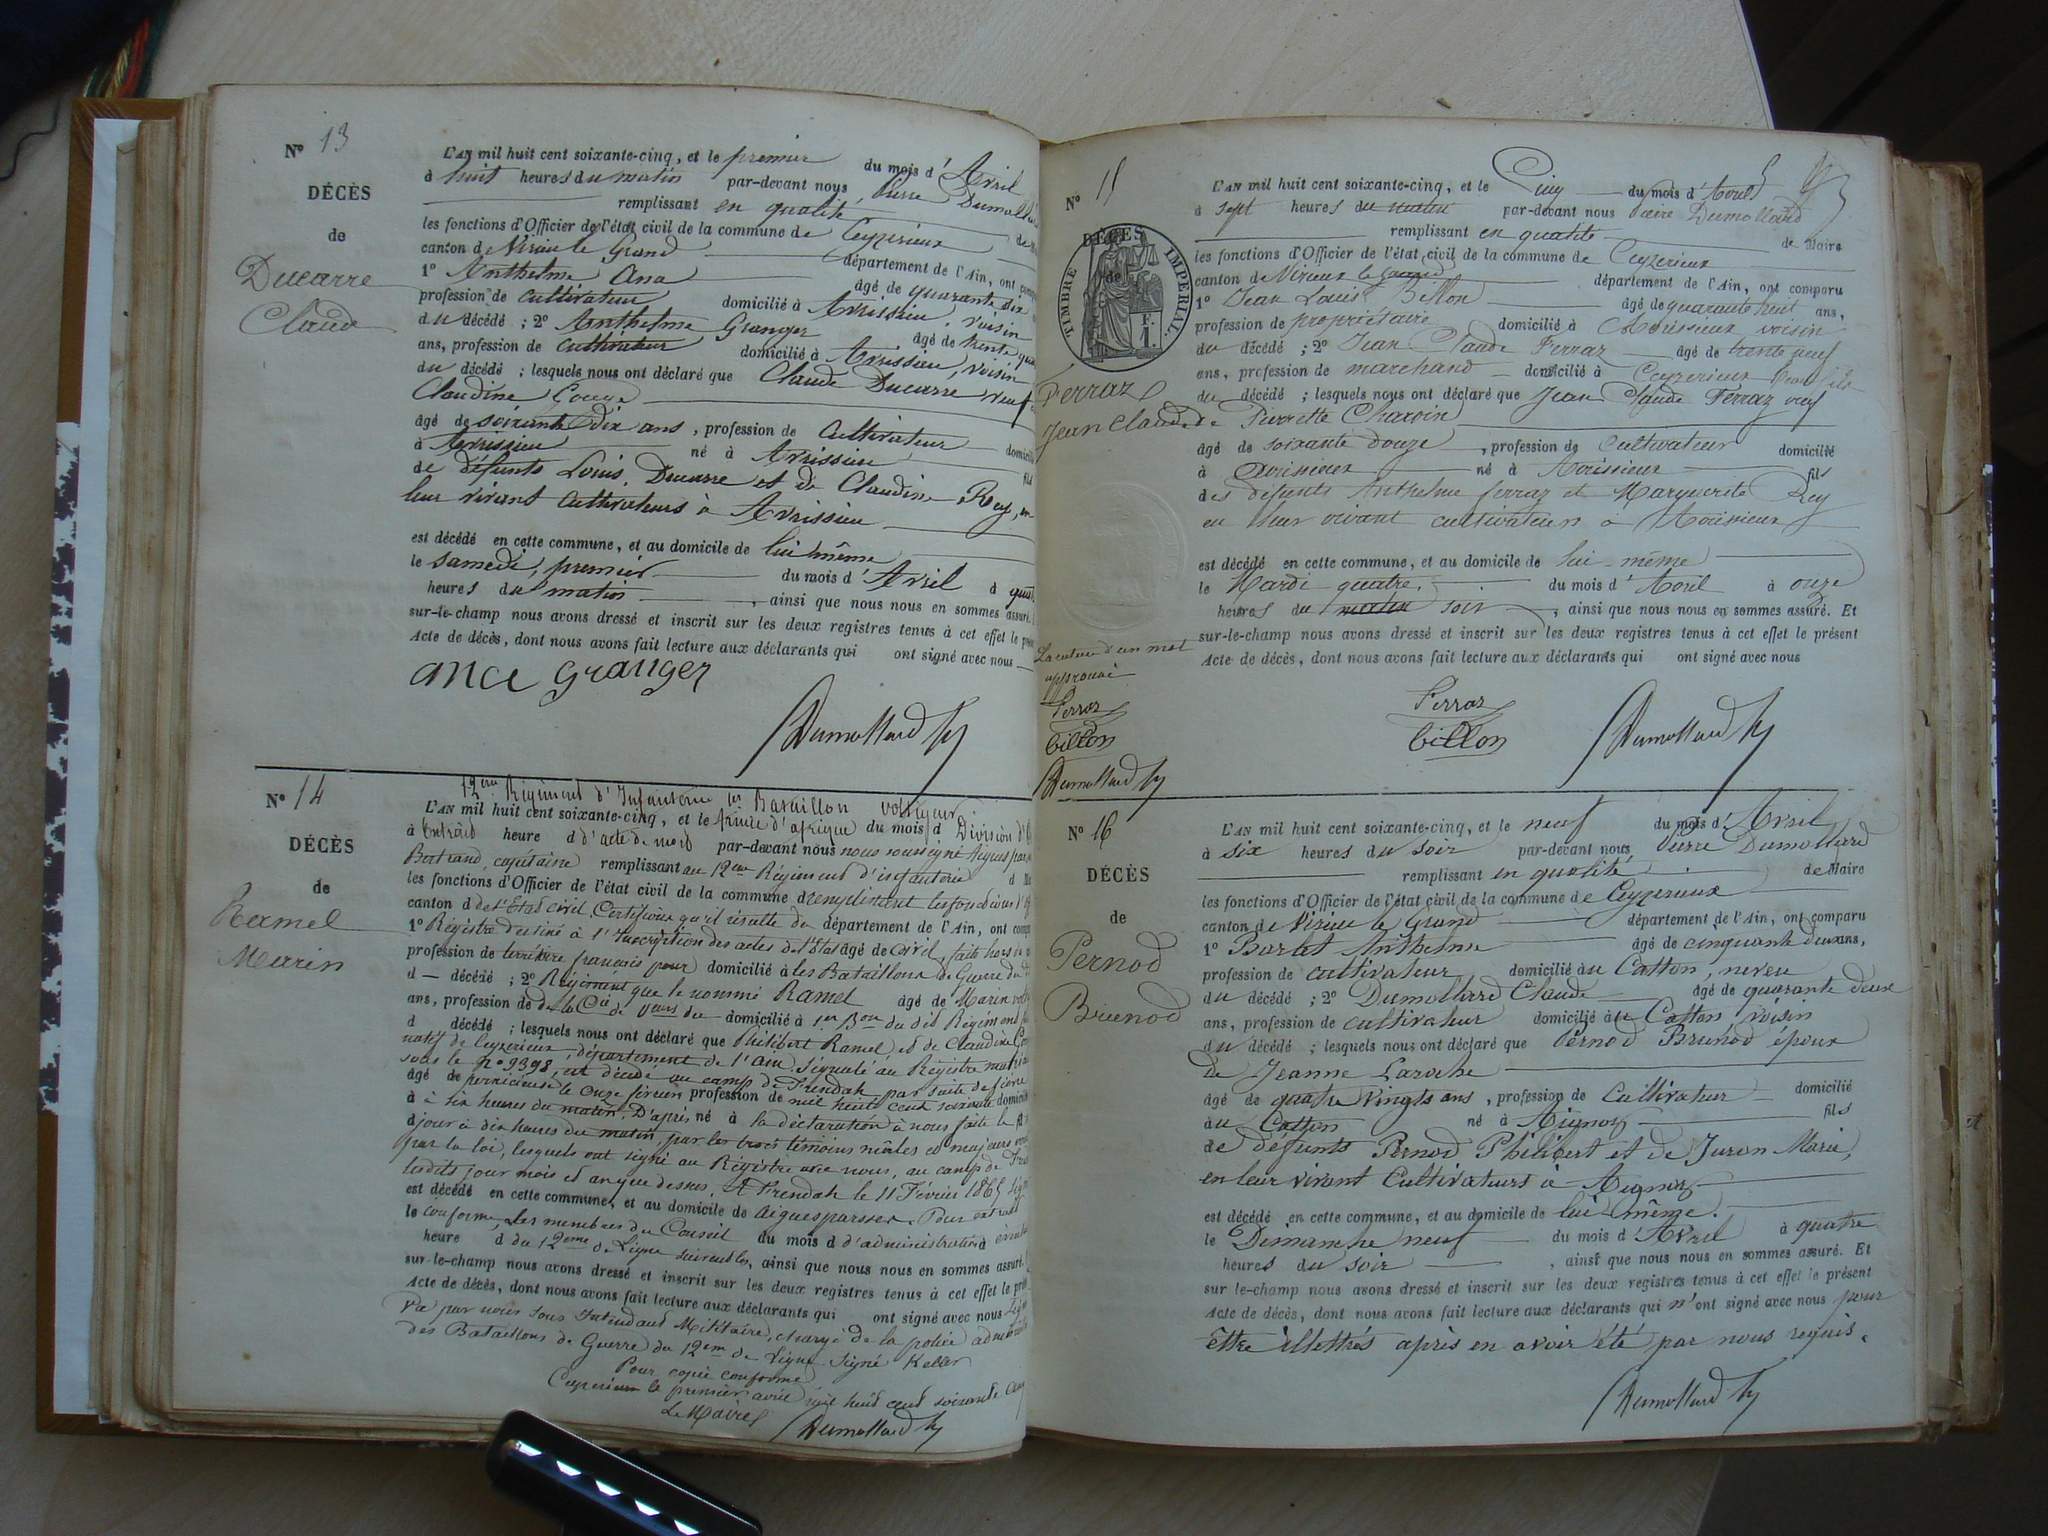 Nº 13
DÉCÈS
de
Ducarre
Claude
L'AN mil huit cent soixante-cinq, et le premier du mois d'Avril
à huit heures du matin par-devant nous, Pierre
remplissant en qualité
les fonctions d'Officier de l'état civil de la commune de Ceyzerieux
canton de Virieu le Grand département de l'Ain, ont
1º Anthelme Ana âgé de quarante six
profession de cultivateur domicilié à Avrissieu, voisin
du décédé ; 2º Anthelme Granger âgé de trente
ans, profession de cultivateur domicilié à Avrissieu, voisin
du décédé ; lesquels nous ont déclaré que Claude Ducarre veuf
Claudine
âgé de soixante dix ans, profession de cultivateur
à Avrissieu né à Avrissieu fils
de défunts Louis Ducarre et de Claudine Rey, en
leur vivant cultivateurs à Avrissieu
est décédé en cette commune, et au domicile de lui même
le samedi, premier du mois d'Avril à
heures du matin, ainsi que nous nous en sommes assuré.
sur-le-champ nous avons dressé et inscrit sur les deux registres tenus à cet effet le
Acte de décès, dont nous avons fait lecture aux déclarants qui ont signé avec nous
ance granger
Dumollard
Nº 14
DÉCÈS
de
Ramel
Marin
12eme Régiment d'Infanterie 1er Bataillon voltigeurs
L'AN mil huit cent soixante-cinq, et le Armée d'afrique du mois d Division
à Extrait heure d d'acte de mort par-devant nous nous soussigné
Bertrand, capitaine remplissant au 12eme Régiment d'infanterie
les fonctions d'Officier de l'état civil de la commune d remplissant les fonctions
canton d de l'Etat civil, Certifions qu'il résulte du département de l'Ain, ont
1º Registre destiné à l'Inscription des actes de l'Etat âgé de civil, faits hors du
profession de territoire français pour domicilié à les Bataillons de Guerre du
d décédé ; 2º Régiment que le nommé Ramel âgé de Marin
ans, profession de de la Cie de domicilié à 1er Bon du dit Régiment
d décédé ; lesquels nous ont déclaré que Philibert Ramel et de Claudine
natif de Ceyzerieux, département de l'Ain, signalé au Régistre matricule
sous le nº 9398, est décédé au camp de Frendah par suite de fièvre
âgé de pernicieuse le onze février profession de mil huit cent soixante
à à six heures du matin. D'après né à la déclaration à nous faite le
d jour à dix heures du matin, par les trois témoins mâles et majeurs
par la loi, lesquels ont signé au Régistre avec nous, au camp de
lesdits jour mois et an que dessus. A Frendah le 11 Février 1865
est décédé en cette commune, et au domicile de Aiguesparsses. Pour
le conforme, Les membres du Conseil du mois d d'administration à
heure d du 12eme de Ligne, ainsi que nous nous en sommes assuré.
sur-le-champ nous avons dressé et inscrit sur les deux registres tenus à cet effet le
Acte de décès, dont nous avons fait lecture aux déclarants qui ont signé avec nous
Vu par nous sous Intendant Militaire, chargé de la police
des Bataillons de Guerre du 12em de Ligne signé Keller
Pour copie conforme
Ceyzerieux le premier avril mil huit cent soixante cinq
Le Maire
Dumollard
Nº 15
DÉCÈS
de
TIMBRE IMPÉRIAL
Ferraz
Jean Claude
L'AN mil huit cent soixante-cinq, et le Cinq du mois d'Avril
à sept heures du matin par-devant nous Pierre Dumollard
remplissant en qualité de Maire
les fonctions d'Officier de l'état civil de la commune de Ceyzerieux
canton de Virieux le Grand département de l'Ain, ont comparu
1º Jean Louis Billon âgé de quarante huit ans,
profession de propriétaire domicilié à Avrissieux voisin
du décédé ; 2º Jean Claude Ferraz âgé de trente neuf
ans, profession de marchand domicilié à Ceyzerieux
du décédé ; lesquels nous ont déclaré que Jean Claude Ferraz veuf
de Pierrette Charvin
âgé de soixante douze, profession de cultivateur domicilié
à Avrissieux né à Avrissieux fils
des défunts Anthelme Ferraz et Marguerite Rey
en leur vivant cultivateurs à Avrissieux
est décédé en cette commune, et au domicile de lui-même
le Mardi quatre du mois d'Avril à onze
heures du matin soir, ainsi que nous nous en sommes assuré. Et
sur-le-champ nous avons dressé et inscrit sur les deux registres tenus à cet effet le présent
Acte de décès, dont nous avons fait lecture aux déclarants qui ont signé avec nous
d'un mot
approuvé
Ferraz
billon
Dumollard
Ferraz
billon
Dumollard
Nº 16
DÉCÈS
de
Pernod
Brunod
L'AN mil huit cent soixante-cinq, et le neuf du mois d'Avril
à six heures du soir par-devant nous, Pierre Dumollard
remplissant en qualité de Maire
les fonctions d'Officier de l'état civil de la commune de Ceyzerieux
canton de Virieu le Grand département de l'Ain, ont comparu
1º Borlat Anthelme âgé de cinquante deux ans,
profession de cultivateur domicilié au Catton, neveu
du décédé ; 2º Dumollard Claude âgé de quarante deux
ans, profession de cultivateur domicilié au Catton voisin
du décédé ; lesquels nous ont déclaré que Pernod Brunod époux
de Jeanne Laroche
âgé de quatre vingts ans, profession de Cultivateur domicilié
au Catton né à fils
de défunts Pernod Philibert et de Juron Marie,
en leur vivant Cultivateurs à
est décédé en cette commune, et au domicile de lui-même.
le Dimanche neuf du mois d'Avril à quatre
heures du soir, ainsi que nous nous en sommes assuré. Et
sur le-champ nous avons dressé et inscrit sur les deux registres tenus à cet effet le présent
Acte de décès, dont nous avons fait lecture aux déclarants qui n'ont signé avec nous pour
être illettrés après en avoir été par nous requis.
Dumollard